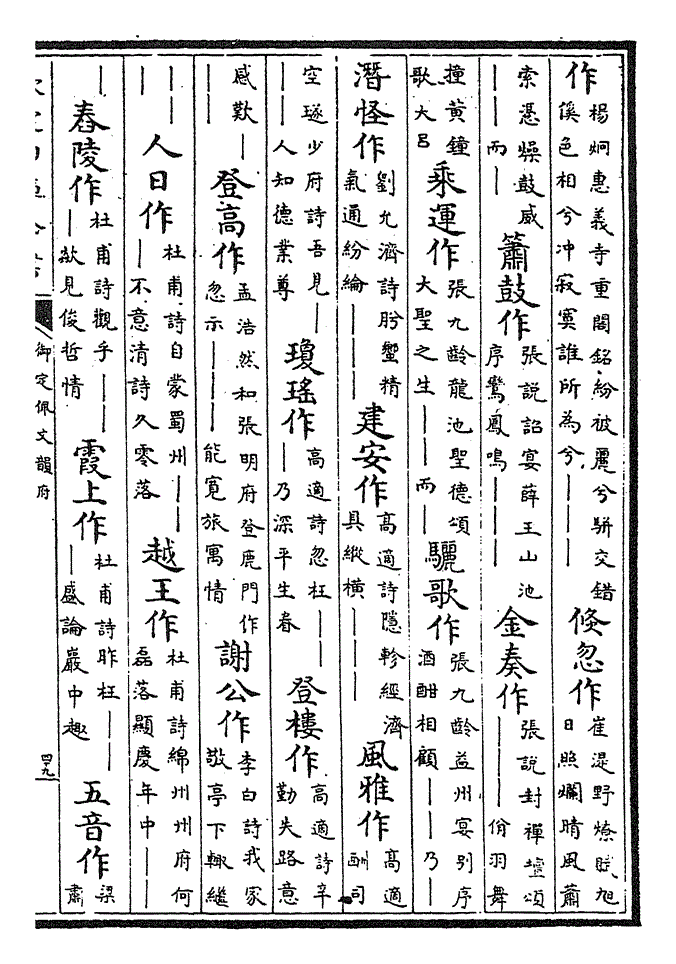 作楊炯惠義寺重閣銘紛被麗兮駢交錯傒色相兮沖寂寞誰所為兮｜｜｜倏忽作崔湜野燎賦旭日照爛晴風蕭
索憑燥鼓威｜｜而｜簫鼓作張說詔宴薛王山池序鸞鳳鳴｜｜｜金奏作張說封禪壇頌｜｜｜佾羽舞
撞黃鐘歌大呂乘運作張九齡龍池聖德頌大聖之生｜｜而｜驪歌作張九齡益州宴別序酒酣相顧｜｜乃｜
潛怪作劉允濟詩肹蠁精氣通紛綸｜｜｜建安作高適詩隱軫經濟具縱橫｜｜｜風雅作高適酬司
空璲少府詩吾見｜｜｜人知德業尊瓊瑤作高適詩忽枉｜｜｜乃深平生眷登樓作高適詩辛勤失路意
感歎｜｜｜登高作孟浩然和張明府登鹿門作忽示｜｜｜能寬旅寓情謝公作李白詩我家敬亭下輒繼
｜｜｜人日作杜甫詩自蒙蜀州｜｜｜不意清詩久零落越王作杜甫詩綿州州府何磊落顯慶年中｜
｜｜舂陵作杜甫詩觀乎｜｜｜欻見俊哲情霞上作杜甫詩昨枉｜｜｜盛論巖中趣五音作梁肅
御定佩文韻府
四九